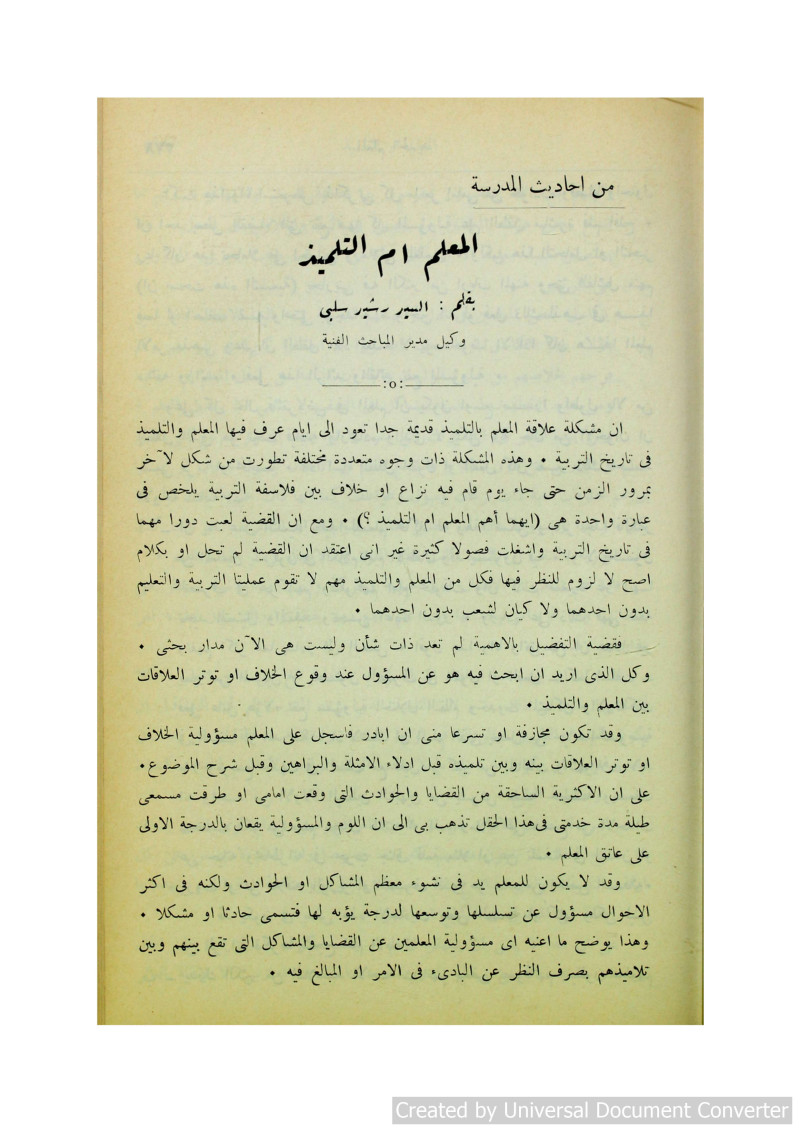 من احاديث المدرسة
المعلم ام التلميذ
بقلم : السيد رشيد سلبي
وكيل مدير المباحث الفنية
:o:
ان مشكلة علاقة المعلم بالتلميذ قديمة جدا تعود الى ايام عرف فيها المعلم والتلميذ
فى تاريخ التربية • وهذه المشكلة ذات وجوه متعددة مختلفة تطورت من شكل لآخر
بمرور الزمن حتى جاء يوم قام فيه نزاع او خلاف بين فلاسفة التربية يلخص فى
عبارة واحدة هى (ايهما أهم المعلم ام التلميذ ؟) • ومع ان القضية لعبت دورا مهما
فى تاريخ التربية واشغلت فصولا كثيرة غير انى اعتقد ان القضية لم تحل او بكلام
اصح لا لزوم للنظر فيها فكل من المعلم والتلميذ مهم لا تقوم عمليتا التربية والتعليم
بدون احدهما ولا كيان لشعب بدون احدهما •
فقضية التفضيل بالاهمية لم تعد ذات شأن وليست هى الآن مدار بحثى •
وكل الذى اريد ان ابحث فيه هو عن المسؤول عند وقوع الخلاف او توتر العلاقات
بين المعلم والتلميذ •
وقد تكون مجازفة او تسرعا منى ان ابادر فاسجل على المعلم مسؤولية الخلاف
او توتر العلاقات بينه وبين تلميذه قبل ادلاء الامثلة والبراهين وقبل شرح الموضوع •
على ان الاكثرية الساحقة من القضايا والحوادث التى وقعت امامى او طرقت مسمعى
طيلة مدة خدمتى فى هذا الحقل تذهب بى الى ان اللوم والمسؤولية يقعان بالدرجة الاولى
على عاتق المعلم •
وقد لا يكون للمعلم يد فى نشوء معظم المشاكل او الحوادث ولكنه فى اكثر
الاحوال مسؤول عن تسلسلها وتوسعها لدرجة يؤبه لها فتسمى حادثا او مشكلا •
وهذا يوضح ما اعنيه اى مسؤولية المعلمين عن القضايا والمشاكل التى تقع بينهم وبين
تلاميذهم بصرف النظر عن البادىء فى الامر او المبالغ فيه •
Created by Universal Document Converter